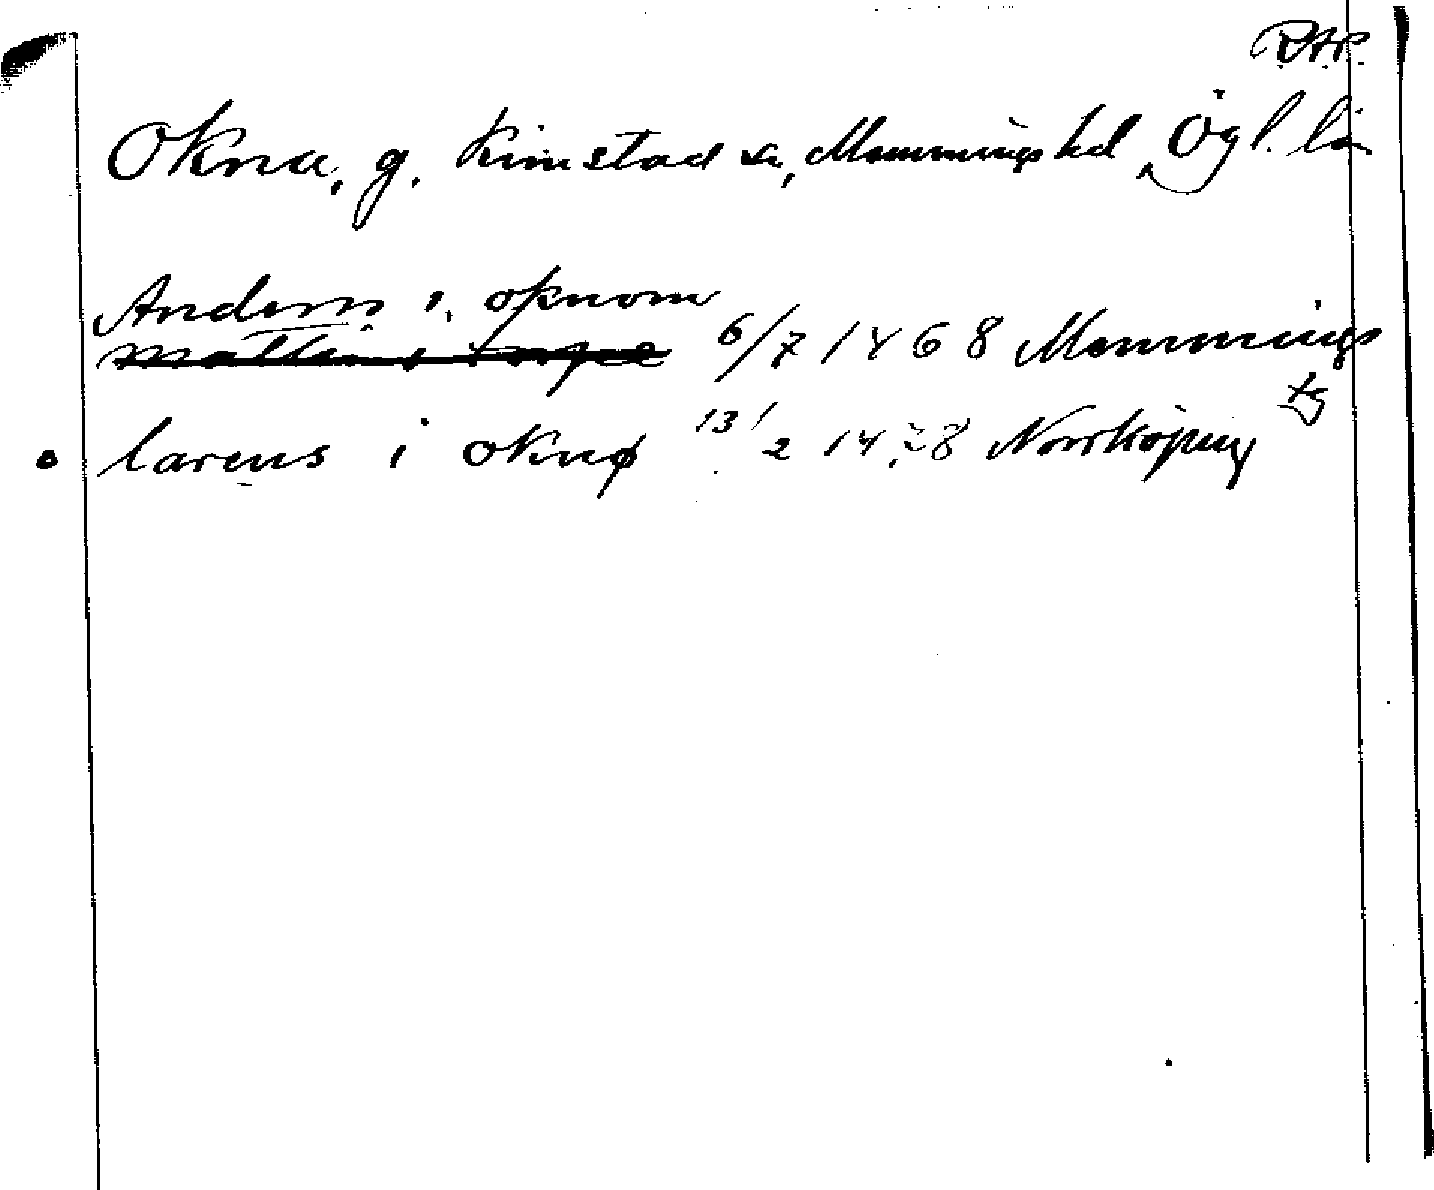 RAP.
Okna, g. Kimstad sn, Memmings hd, Ögl. län
Anders i oknom
6/7 1468 Memmings
tg
larens i oknø 13/2 1428 Norrköping